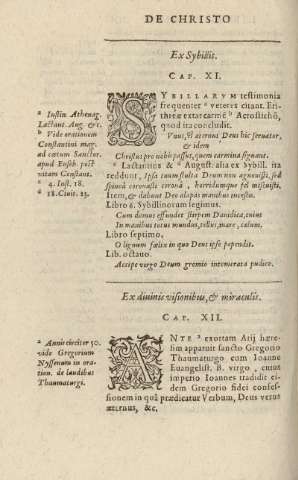 DE CHRISTO
Ex Sybillis.
CAP. XI.
a Iustin Athenag.
Lactant. Aug. &c.
b Vide orationem
Constantini mag.
ad cœtum Sanctor.
apud Euseb. post
vitam Constant.
c 4. Inst. 18.
d 18. Ciuit. 23.
SYBILLARVM testimonia
frequenter a veteres citant. Eri-
threæ extat carmē b Acrostichō,
quod ita concludit.
Sunt, & æterna Deus hic seruator,
& idem
Christus pro nobis passus, quem carmina signant.
c Lactantius & d August. alia ex Sybill. ita
reddunt, Ipsa enim stulta Deum non agnouisti, sed
spinis coronasti corona, horridumque fel miscuisti.
Item, & dabunt Deo alapas manibus incestis.
Libro 6. Sybillinorum legimus.
Cum domus effundet stirpem Dauidica, cuius
In manibus totus mundus, tellus, mare, cælum.
Libro septimo.
O lignum fœlix in quo Deus ipse pependit.
Lib. octauo.
Accipe virgo Deum gremio intemerata pudico.
Ex diuinis visionibus, & miraculis.
CAP. XII.
a Annis circiter 50.
vide Gregorium
Nyssenum in ora-
tion. de laudibus
Thaumaturgi.
ANTE a exortam Arij hære-
sim apparuit sancto Gregorio
Thaumaturgo cum Ioanne
Euangelist. B. virgo, cuius
imperio Ioannes tradidit ei-
dem Gregorio fidei confes-
sionem in quâ prædicatur Verbum, Deus verus
æternus, &c.